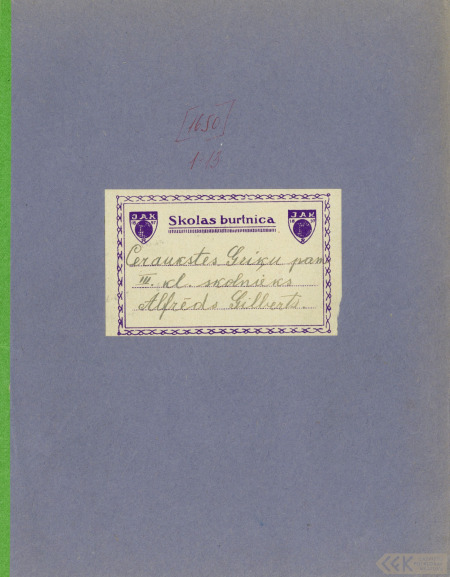 [1650]
1-15
JAK
JAK
Skolas burtnica
Ceraukstes Geiķu pam
III. kl. skolnieks
Alfrēds Gilberts.